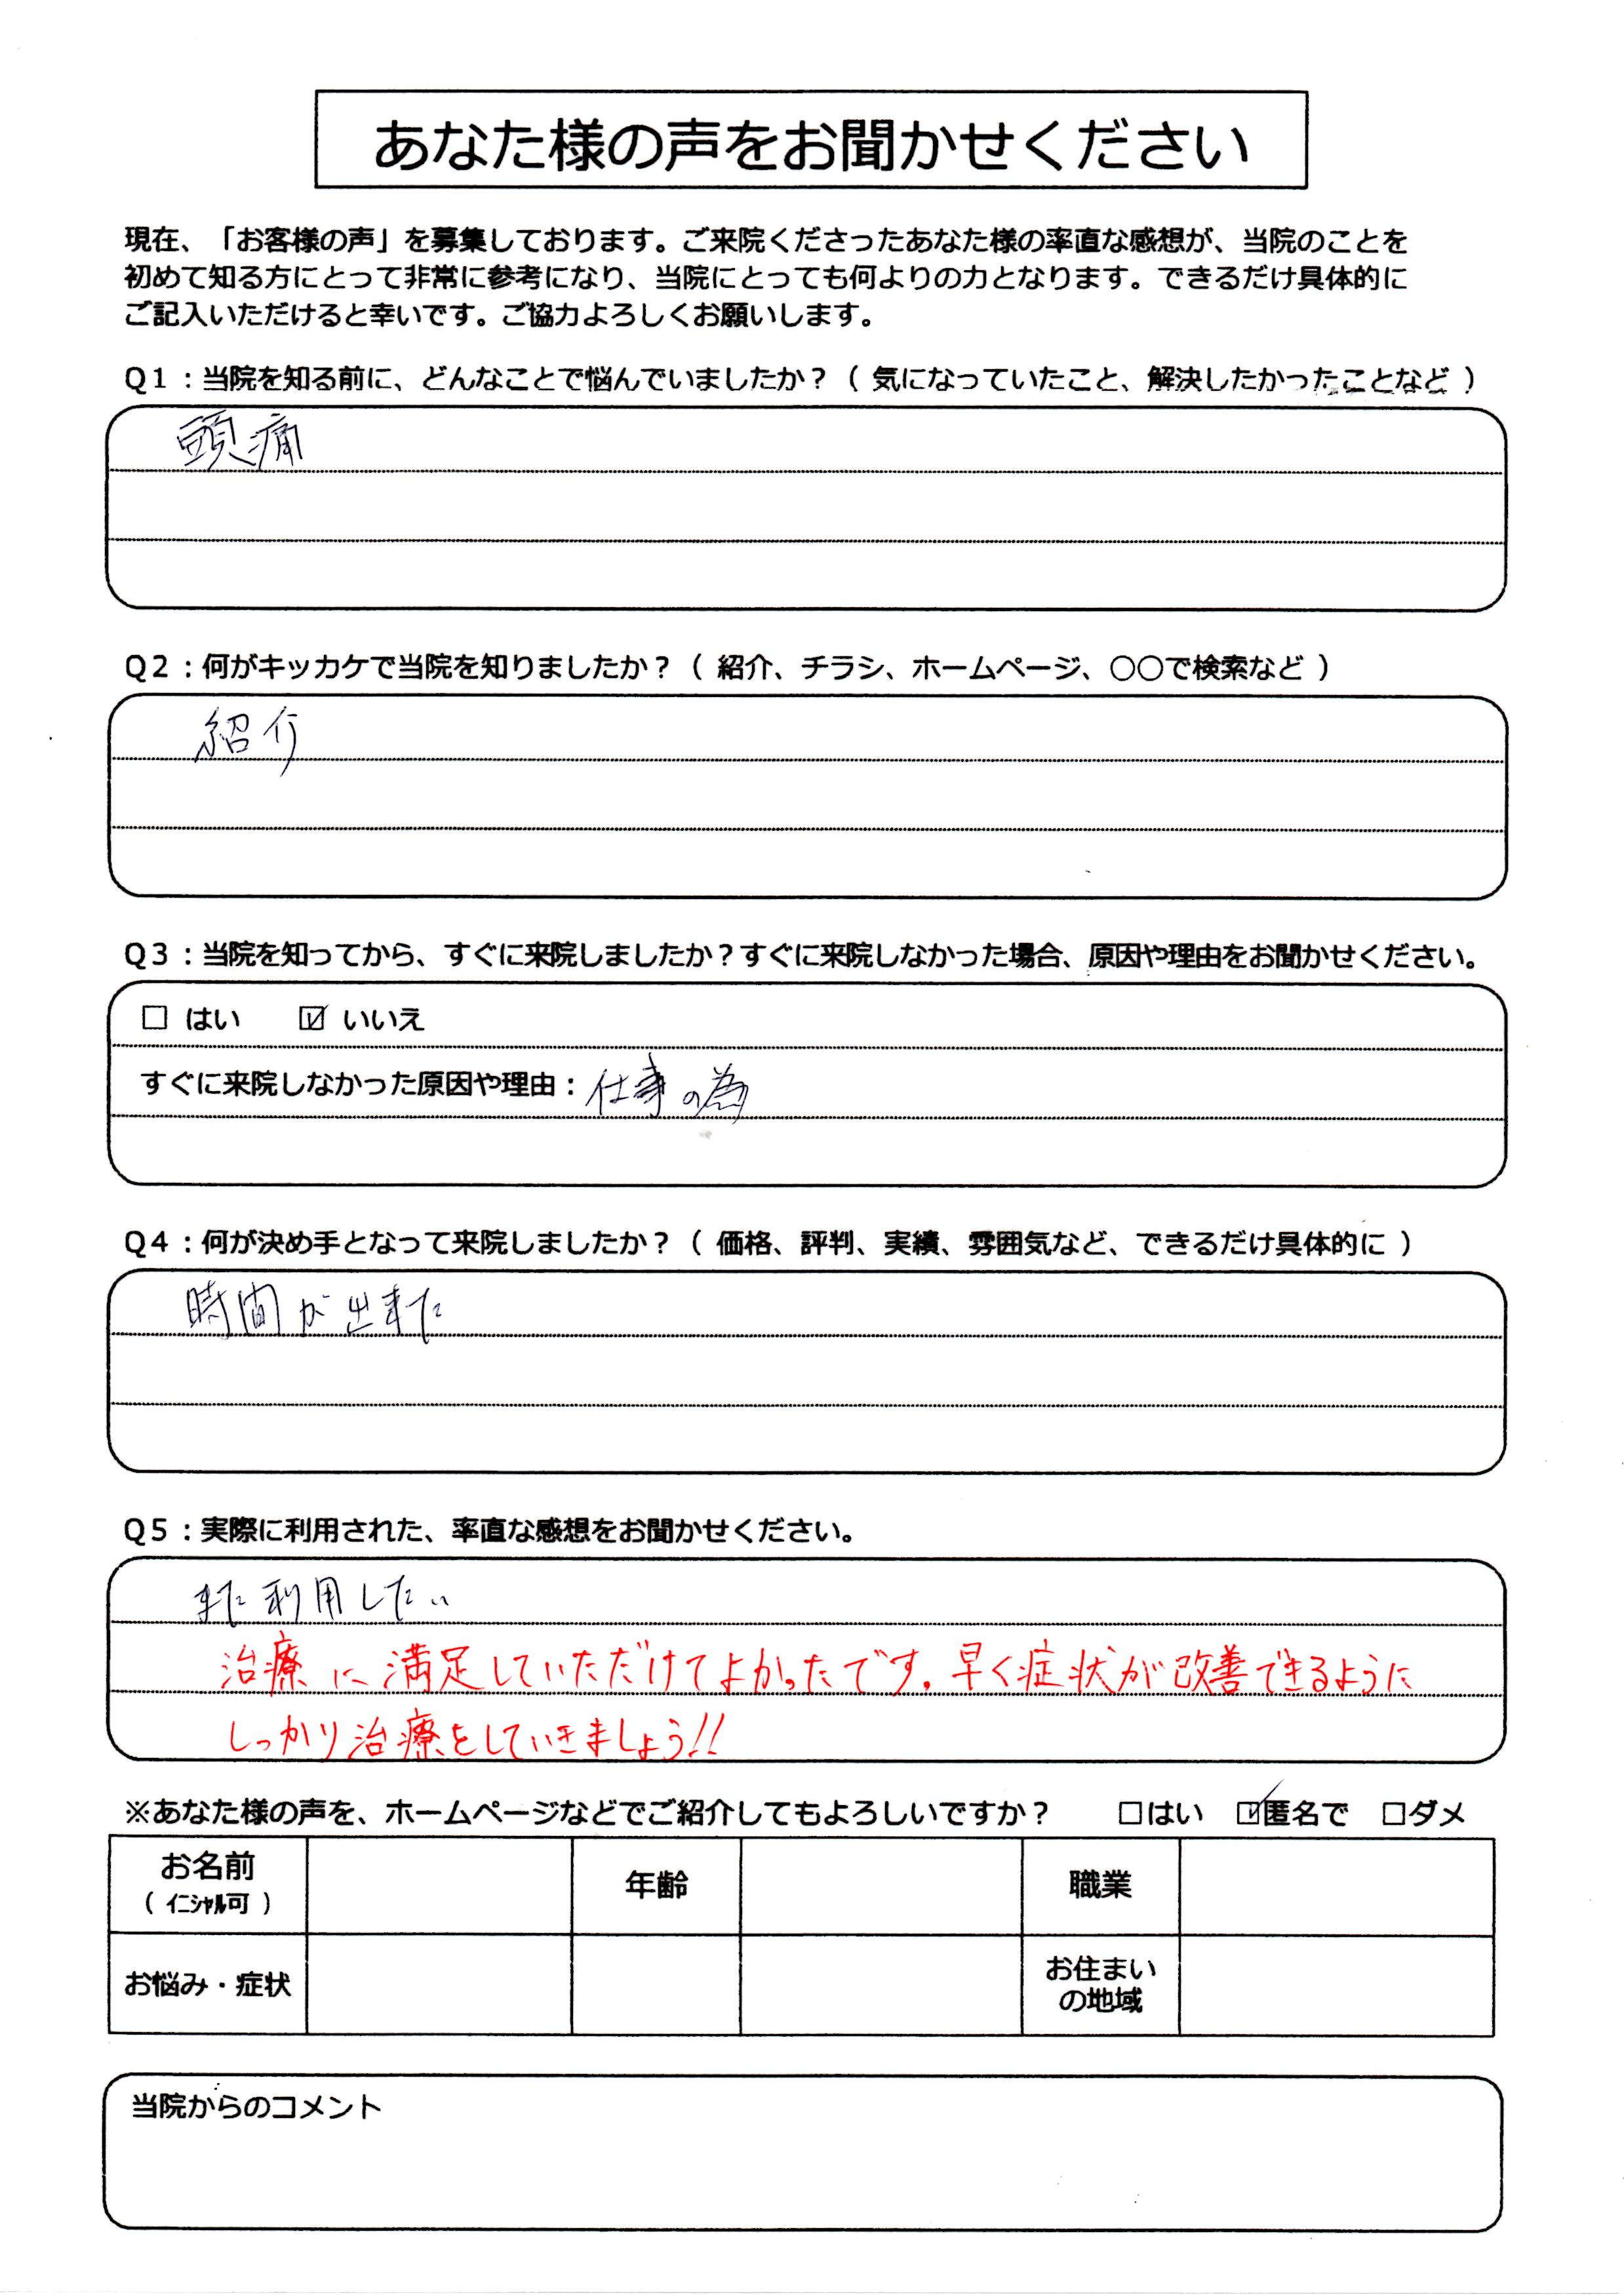 あなた様の声をお聞かせください
現在、「お客様の声」を募集しております。ご来院くださったあなた様の率直な感想が、当院のことを
初めて知る方にとって非常に参考になり、当院にとっても何よりの力となります。できるだけ具体的に
ご記入いただけると幸いです。ご協力よろしくお願いします。
Q1：当院を知る前に、どんなことで悩んでいましたか？（ 気になっていたこと、解決したかったことなど ）
頭痛
Q2：何がキッカケで当院を知りましたか？（ 紹介、チラシ、ホームページ、○○で検索など ）
紹介
Q3：当院を知ってから、すぐに来院しましたか？すぐに来院しなかった場合、原因や理由をお聞かせください。
□ はい ☑ いいえ
すぐに来院しなかった原因や理由：仕事の為
Q4：何が決め手となって来院しましたか？（ 価格、評判、実績、雰囲気など、できるだけ具体的に ）
時間が出来た
Q5：実際に利用された、率直な感想をお聞かせください。
また利用したい
治療に満足していただけてよかったです。早く症状が改善できるように
しっかり治療をしていきましょう!!
※あなた様の声を、ホームページなどでご紹介してもよろしいですか？ □はい ☑匿名で □ダメ
お名前 年齢 職業
（ イニシャル可 ）
お悩み・症状 お住まい
の地域
当院からのコメント